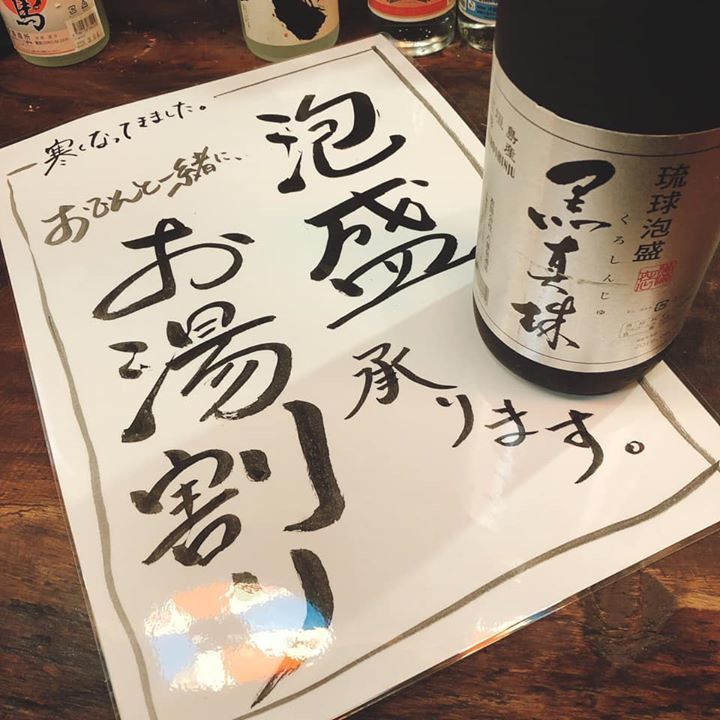 寒くなってきました。
おでんと一緒に、
泡盛
お湯割り
承ります。
琉球泡盛
黒真珠
くろしんじゅ
島産